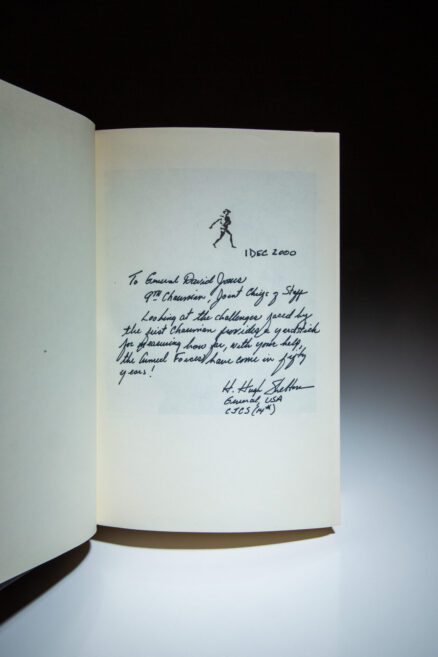 1 DEC 2000
To General David Jones
9TH Chairman, Joint Chiefs of Staff
Looking at the challenges faced by
the first Chairman provides a yardstick
for measuring how far, with your help,
the Armed Forces have come in fifty
years!
H. Hugh Shelton
General, USA
CJCS (14th)